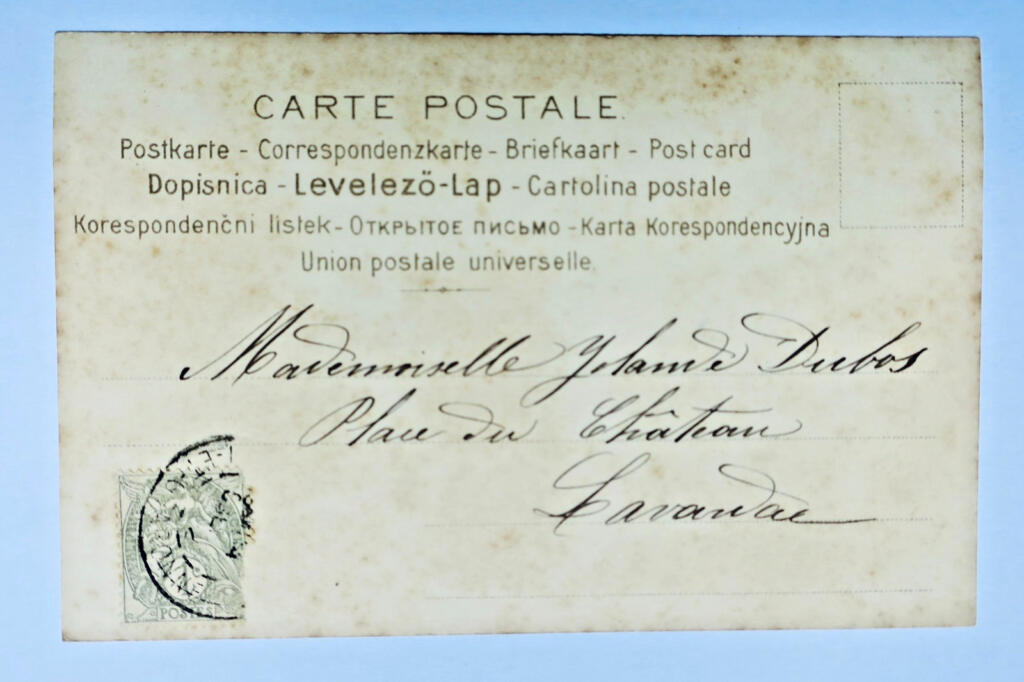 CARTE POSTALE.
Postkarte - Correspondenzkarte - Briefkaart - Post card
Dopisnica - Levelező-Lap - Cartolina postale
Korespondenčni listek - Открытое письмо - Karta Korespondencyjna
Union postale universelle.
Mademoiselle Yolande Dubos
Place du Château
POSTES